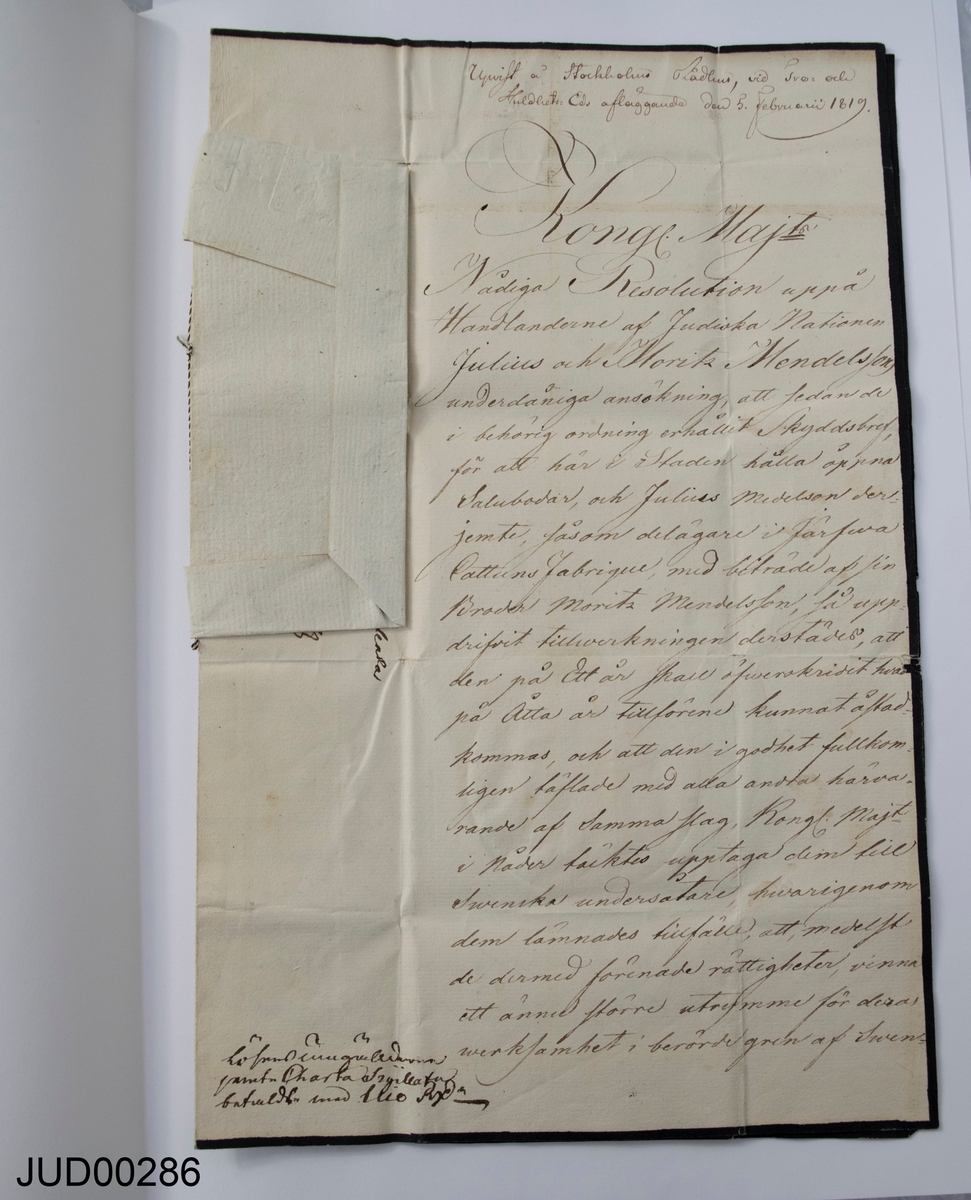 Upvist å Stockholms Rådhus, vid Tro och
Huldhets Eds afläggande den 5. Februarii 1819.
Kongl. Majts
Nådiga Resolution uppå
Handlanderne af Judiska Nationen
Julius och Moritz Mendelsson,
underdåniga ansökning, att sedan de
i behörig ordning erhållit Skyddsbref,
för att här i Staden hålla öppna
Salubodar, och Julius Medelson der-
jemte, såsom delägare i Järfwa
Cattuns Fabrique, med biträde af sin
Broder Moritz Mendelsson, så upp-
drifvit tillwerkningen derstädes, att
den på Ett år skall öfwerskridit hvad
på Åtta år tillförene kunnat åstad-
kommas, och att den i godhet fullkom-
ligen täflade med alla andra härva-
rande af samma slag, Kongl. Majt
i Nåder täcktes upptaga dem till
Swenska undersåtare, hwarigenom
dem lämnades tillfälle, att, medelst
de dermed förenade rättigheter, vinna
ett ännu större utrymme för deras
werksamhet i berörde gren af Swen-
Lösen
jemte Charta Sigillata
betaldt med
JUD00286